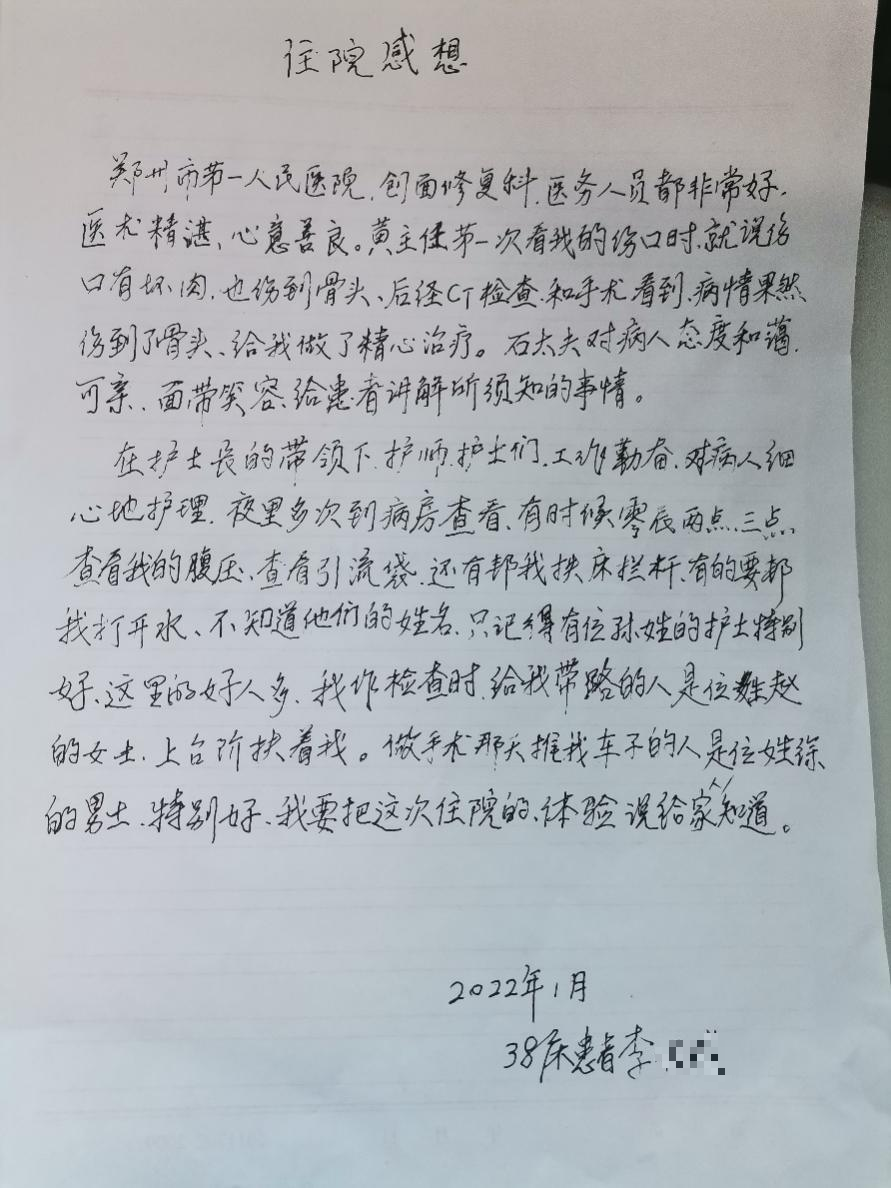 住院感想
郑州市第一人民医院、创面修复科、医务人员都非常好、
医术精湛、心意善良。黄主任第一次看我的伤口时、就说伤
口有坏肉、也伤到骨头、后经CT检查、和手术看到、病情果然
伤到了骨头、给我做了精心治疗。石大夫对病人态度和蔼、
可亲、面带笑容、给患者讲解所须知的事情。
在护士长的带领下、护师、护士们、工作勤奋、对病人细
心地护理、夜里多次到病房查看、有时候零辰两点、三点、
查看我的腹压、查看引流袋、还有帮我扶床拦杆、有的要都
我打开水、不知道他们的姓名、只记得有位孙姓的护士特别
好、这里的好人多、我作检查时、给我带路的人是位姓赵
的女士、上台阶扶着我。做手术那天推我车子的人是位姓徐
的男士、特别好、我要把这次住院的、体验说给家人知道。
2022年1月
38床患者李